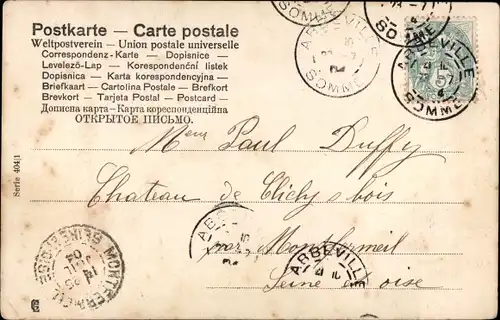 Postkarte — Carte postale
Weltpostverein — Union postale universelle
Correspondenz-Karte — Dopisnice
Levelező-Lap — Korespondenční lístek
Dopisnica — Karta korespondencyjna —
Briefkaart — Cartolina Postale — Brefkort
Brevkort — Tarjeta Postal — Postcard —
Дописна карта — Карта кореспонденційна
ОТКРЫТОЕ ПИСЬМО.
SOMME
ABBEVILLE
SOMME
SOMME
ABBEVILLE
SOMME
Mme Paul Duffy
Chateau de Clichy s bois
par Montfermeil
Seine et Oise
ABBEVILLE
Serie 4041
MONTFERMEIL
04